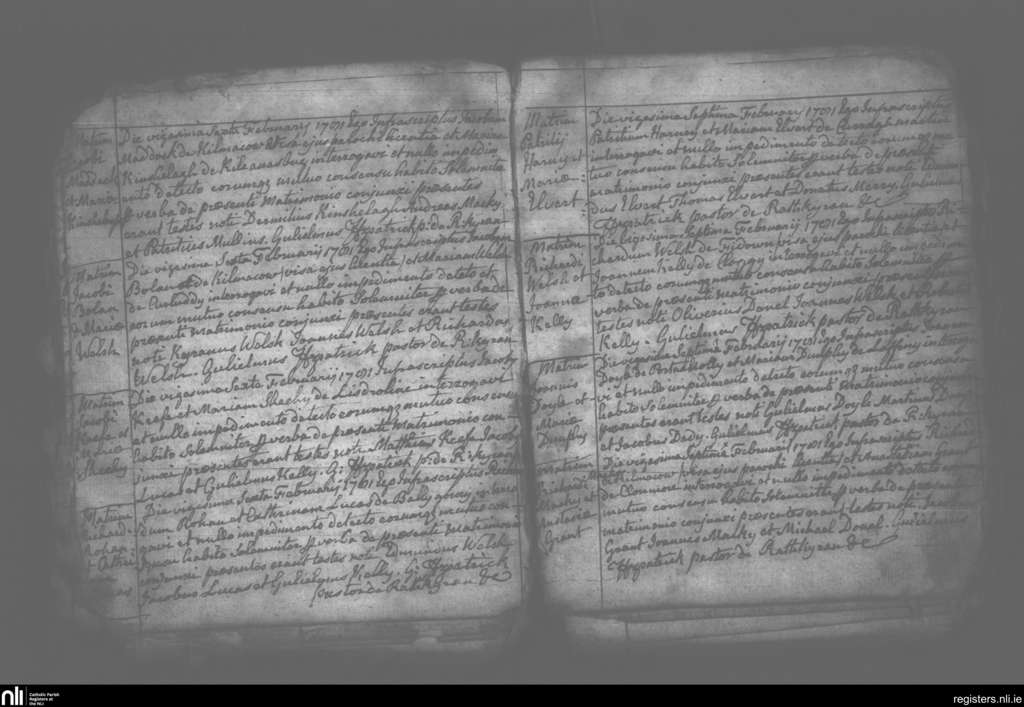 Matrim
Jacobi
Maddock
et Mariæ
Kinshelagh
Die vigesima Sexta Februarij 1781 Ego Infrascriptus Jacobum
Maddock de Kilmacow visa ejus parochi licentia et Mariam
Kinshelagh de interrogavi et nullo impedim
ento detecto eorumq mutuo consensu habito Solemniter
p verba de præsente Matrimonio conjunxi præsentes
erant testes noti Dermitius Kinshelagh Andreas Macky
et Patritius Mullins. Gulielmus Ffzpatrick p: de R:kyran
Matrim
Jacobi
Bolan
et Mariæ
Welsh
Die vigesima Sexta Februarij 1781 Ego Infrascriptus Jacobum
Bolan de Kilmacow (visa ejus licentia) et Mariam Welsh
de interrogavi et nullo impedimento detecto et
eorum mutuo consensu habito Solemniter p verba de
præsenti matrimonio conjunxi præsentes erant testes
noti Kyranus Welsh Joannes Walsh et Richardus
Welsh. Gulielmus Ffzpatrick pastor de R:kyran
Matrim
Jacobi
Keefe et
Mariæ
Sheehy
Die vigesima Sexta Februarij 1781 Infrascriptus Jacobū
Keefe et Mariam Sheehy de Lisdroline interrogavi
et nullo impedimento detecto eorumq mutuo consensu
habito Solemniter p verba de præsente matrimonio con
junxi præsentes erant testes noti Matthæus Keefe Jacobus
Lucas et Gulielmus Kelly. G: Ffzpatrick p: de R:kyran
Matrim
Richardi
Rohan
et Cathri
Die vigesima Sexta Februarij 1781 Ego Infrascriptus Richar
dum Rohan et Cathrinam Lucas de interro
gavi et nullo impedimento detecto eorumq mutuo con
sensu habito Solemniter p verba de præsente matrimonio
conjunxi præsentes erant testes noti Edmundus Welsh
Jacobus Lucas et Gulielmus Kelly. G: Ffzpatrick
pastor de Rathkyran &c
Matrim
Patritij
Harny et
Mariæ
Elvert
Die vigesima Septima Februarij 1781 Ego Infrascriptus
Patritium Harney et Mariam Elvart de
interrogavi et nullo impedimento detecto eorumq mu
tuo consensu habito Solemniter p verba de præsente
matrimonio conjunxi præsentes erant testes noti
Elvert Thomas Elvert et Donatus Merry. Gulielmus
Ffzpatrick pastor de Rathkyran &c
Matrim
Richardi
Welsh et
Joannæ
Kelly
Die vigesima Septima Februarij 1781 Ego Infrascriptus Ri-
chardum Welsh de Fidown visa ejus parochi licentia et
Joannam Kelly de interrogavi et nullo impedimen
to detecto eorumq mutuo consensu habito Solemniter p
verba de præsenti matrimonio conjunxi præsentes
testes noti Oliverus Donel Joannes Welsh et
Kelly. Gulielmus Ffzpatrick pastor de Rathkyran
Matrim
Joannis
Doyle et
Mariæ
Dunphy
Die vigesima Septima Februarij 1781 Ego Infrascriptus Joannem
Doyle de et Mariam Dunphy de interroga
vi et nullo impedimento detecto eorumq mutuo consensu
habito Solemniter p verba de præsenti matrimonio
præsentes erant testes noti Gulielmus Doyle Martinus
et Jacobus Dady. Gulielmus Ffzpatrick pastor de R:kyran
Matrim
Richardi
Macky et
Anstatiæ
Grant
Die vigesima Septima Februarij 1781 Ego Infrascriptus Richard
de Kilmacow (visa ejus parochi licentia) et Anastatiam Grant
de interrogavi et nullo impedimento detecto eorumq
mutuo consensu habito Solemniter p verba de præsenti
matrimonio conjunxi præsentes erant testes noti
Grant Joannes Macky et Michael Donel. Gulielmus
Ffzpatrick pastor de Rathkyran &c
nli
Catholic Parish
Registers at
the NLI
registers.nli.ie